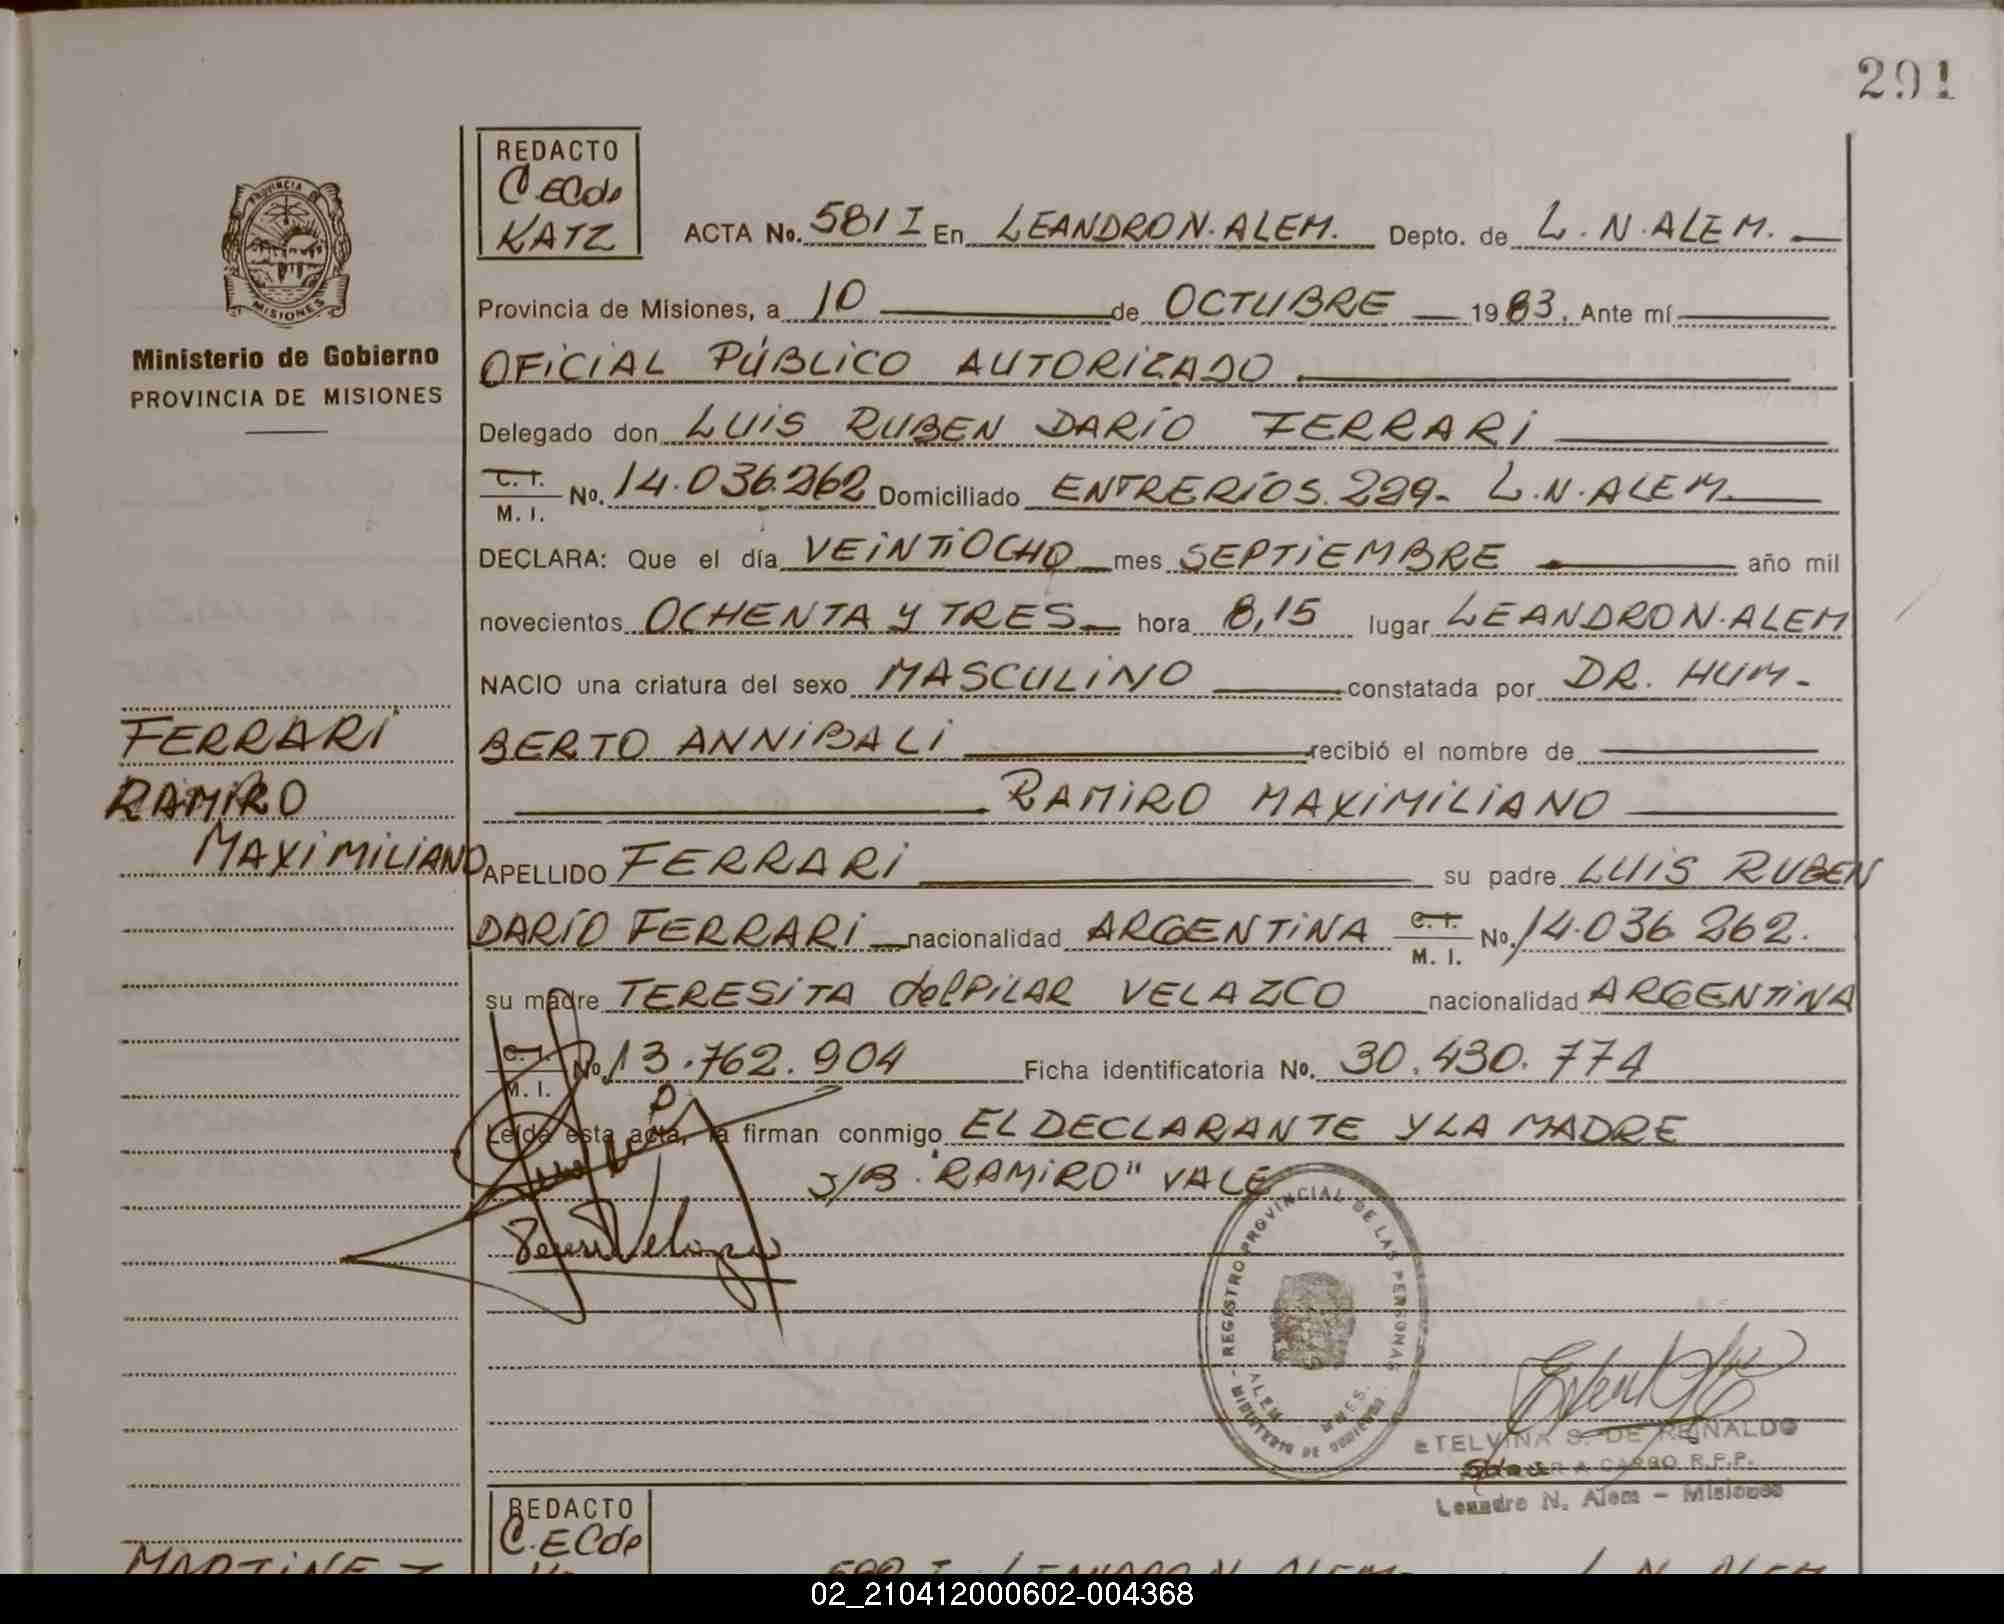 291
REDACTO
C.ECde
KATZ
ACTA No. 581 I En LEANDRO N. ALEM. Depto. de L. N. ALEM.
Provincia de Misiones, a 10 de OCTUBRE 1983. Ante mí
OFICIAL PÚBLICO AUTORIZADO
Delegado don LUIS RUBEN DARÍO FERRARI
C. I. M. I. No. 14.036.262 Domiciliado ENTRE RÍOS. 229- L.N. ALEM.
DECLARA: Que el día VEINTIOCHO mes SEPTIEMBRE año mil
novecientos OCHENTA Y TRES hora 8,15 lugar LEANDRO N. ALEM
NACIO una criatura del sexo MASCULINO constatada por DR. HUM-
BERTO ANNIBALI recibió el nombre de
RAMIRO MAXIMILIANO
APELLIDO FERRARI su padre LUIS RUBEN
DARÍO FERRARI nacionalidad ARGENTINA C. I. M. I. No. 14.036.262.
su madre TERESITA del PILAR VELAZCO nacionalidad ARGENTINA
C. I. M. I. No. 13.762.904 Ficha identificatoria No. 30.430.774
Leída esta acta, la firman conmigo EL DECLARANTE Y LA MADRE
S/B. "RAMIRO" VALE
PROVINCIA
MISIONES
Ministerio de Gobierno
PROVINCIA DE MISIONES
FERRARI
RAMIRO
MAXIMILIANO
REGISTRO PROVINCIAL DE LAS PERSONAS
ALEM MNES.
MINISTERIO DE GOBIERNO
ETELVINA S. DE REINALDO
A CARGO R.P.P.
Leandro N. Alem - Misiones
REDACTO
C.ECde
MARTINEZ
LEANDRO N. ALEM L. N. ALEM
02_210412000602-004368